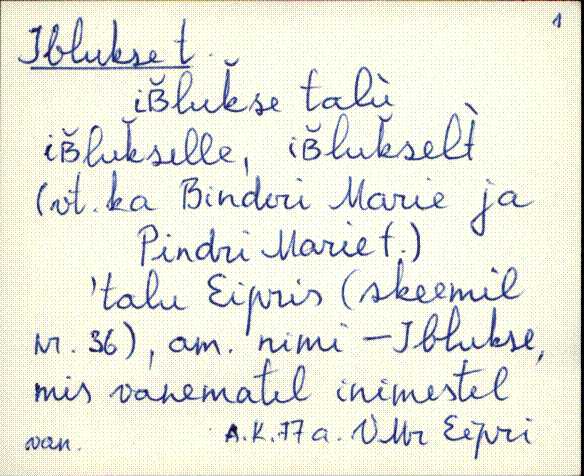 1
Iblukse t.
iʙ̆lŭkse talù
iʙ̆lŭkselle, iʙ̆lŭkselt̀
(vt. ka Binderi Marie ja
Pindri Marie t.)
'talu Eipris (skeemil
nr. 36), am. nimi – Iblukse,
mis vanematel inimestel
van. A.K. 77 a. VMr Eipri